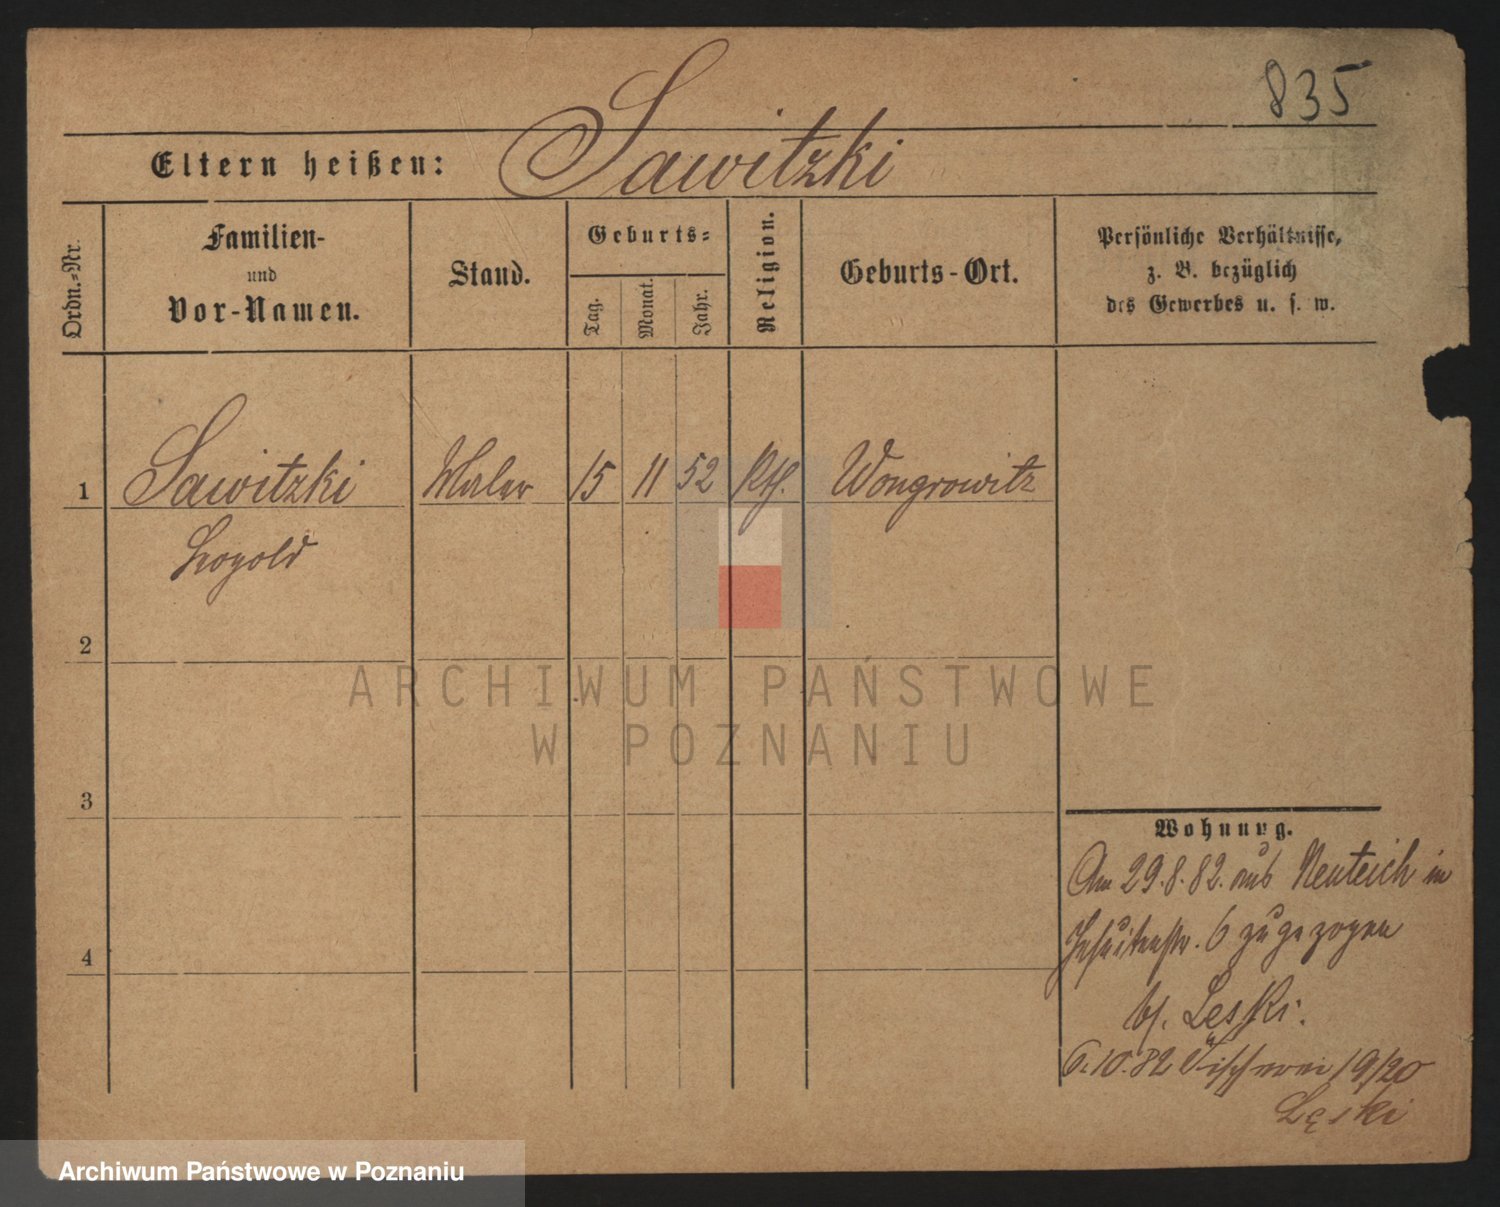 835
Eltern heißen: Sawitzki
Ordn.-Nr.
Familien-
und
Vor-Namen.
Stand.
Geburts-
Tag.
Monat.
Jahr.
Religion.
Geburts-Ort.
Persönliche Verhältnisse,
z. B. bezüglich
des Gewerbes u. s. w.
1 Sawitzki Maler 15 11 52 Kth. Wongrowitz
Leopold
2
3
4
Wohnung.
Am 29.8.82. aus Neuteich in
Jesuitenstr. 6 zugezogen
bei Lęski.
6.10.82 Fischerei 19/20
Lęski
ARCHIWUM PAŃSTWOWE
W POZNANIU
Archiwum Państwowe w Poznaniu